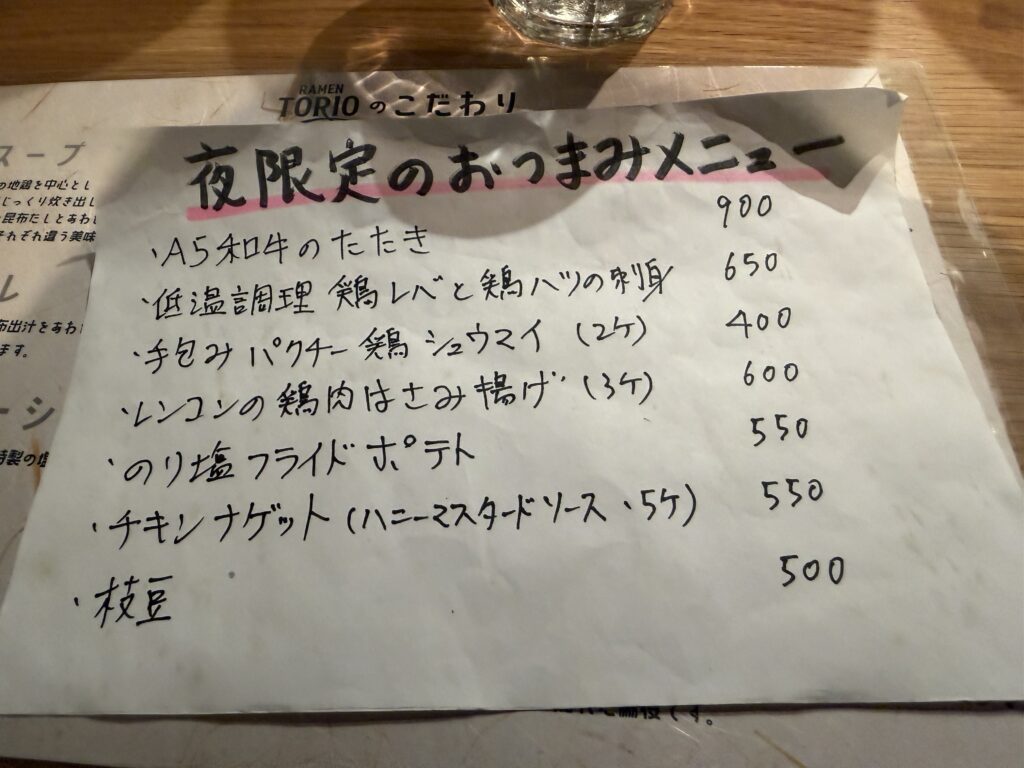 RAMEN
TORIOのこだわり
スープ
の地鶏を中心とし
じっくり炊き出し
昆布だしとあわ
それぞれ違う美味
布出汁をあわ
ます。
ーシ
特製の塩
夜限定のおつまみメニュー
・A5和牛のたたき 900
・低温調理 鶏レバと鶏ハツの刺身 650
・手包みパクチー鶏シュウマイ (2ケ) 400
・レンコンの鶏肉はさみ揚げ (3ケ) 600
・のり塩フライドポテト 550
・チキンナゲット (ハニーマスタードソース・5ケ) 550
・枝豆 500